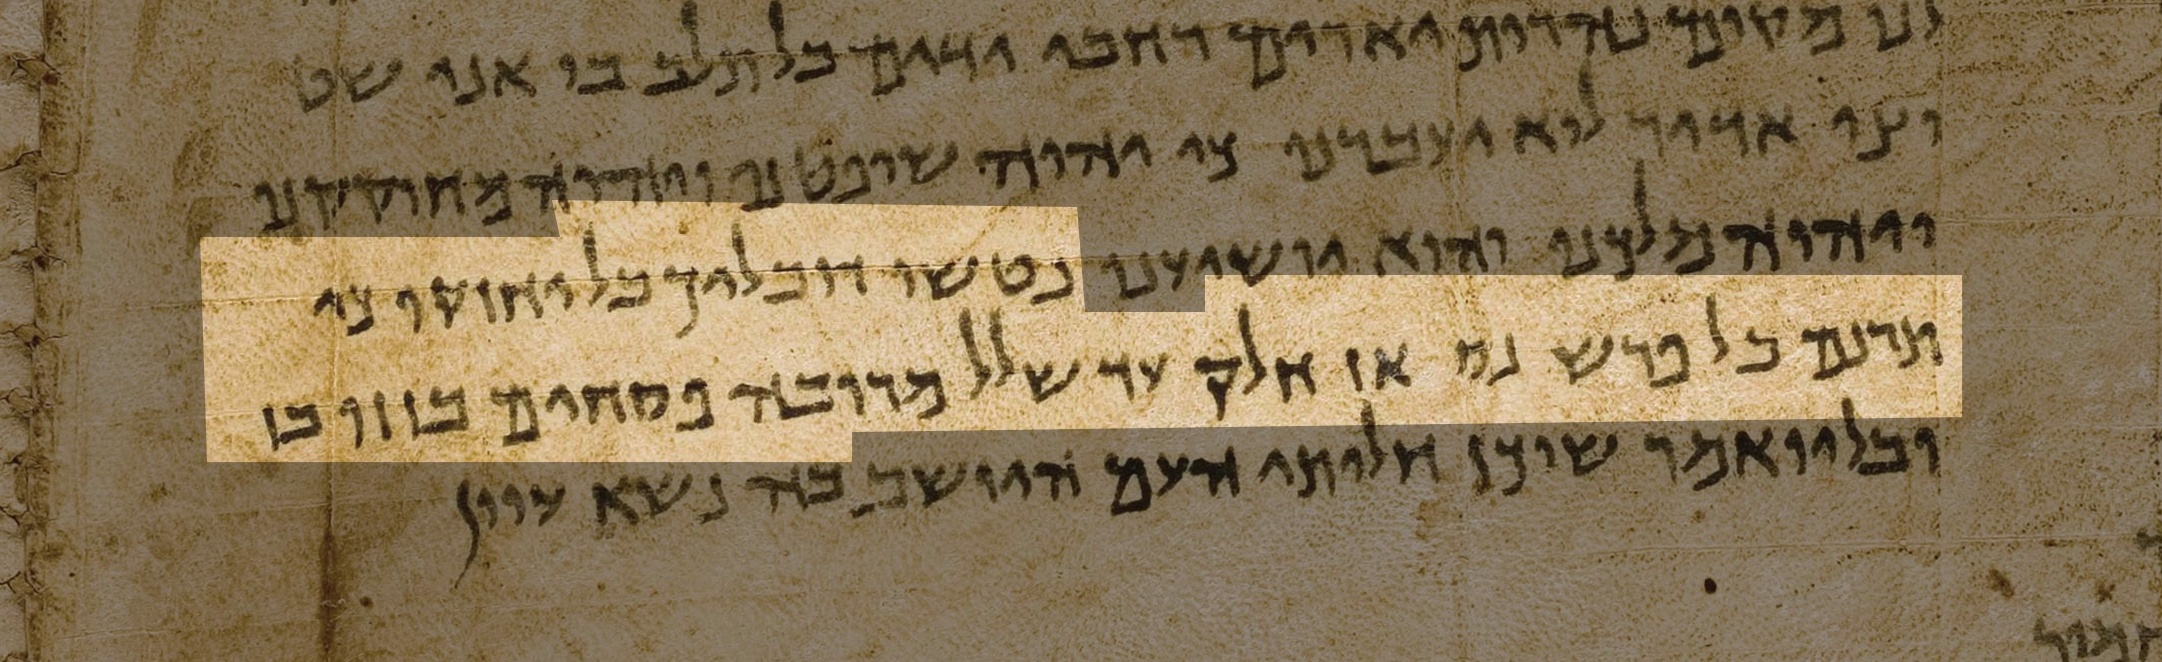 לנו מקום נהרות יארים רחבי ידים בל תלכ בו אני שט
וצי אדיר לוא יעברנו כי יהוה שופטנו ויהוה מחוקקנו
ויהוה מלכנו והוא יושיענו נטשו חובליך בל יחוזקו כי
תרנם בל פרש נס אז חלק עד שלל מרובה פסחים בזזו בז
ובל יואמר שוכן חליתי העם היושב בה נשא עוון